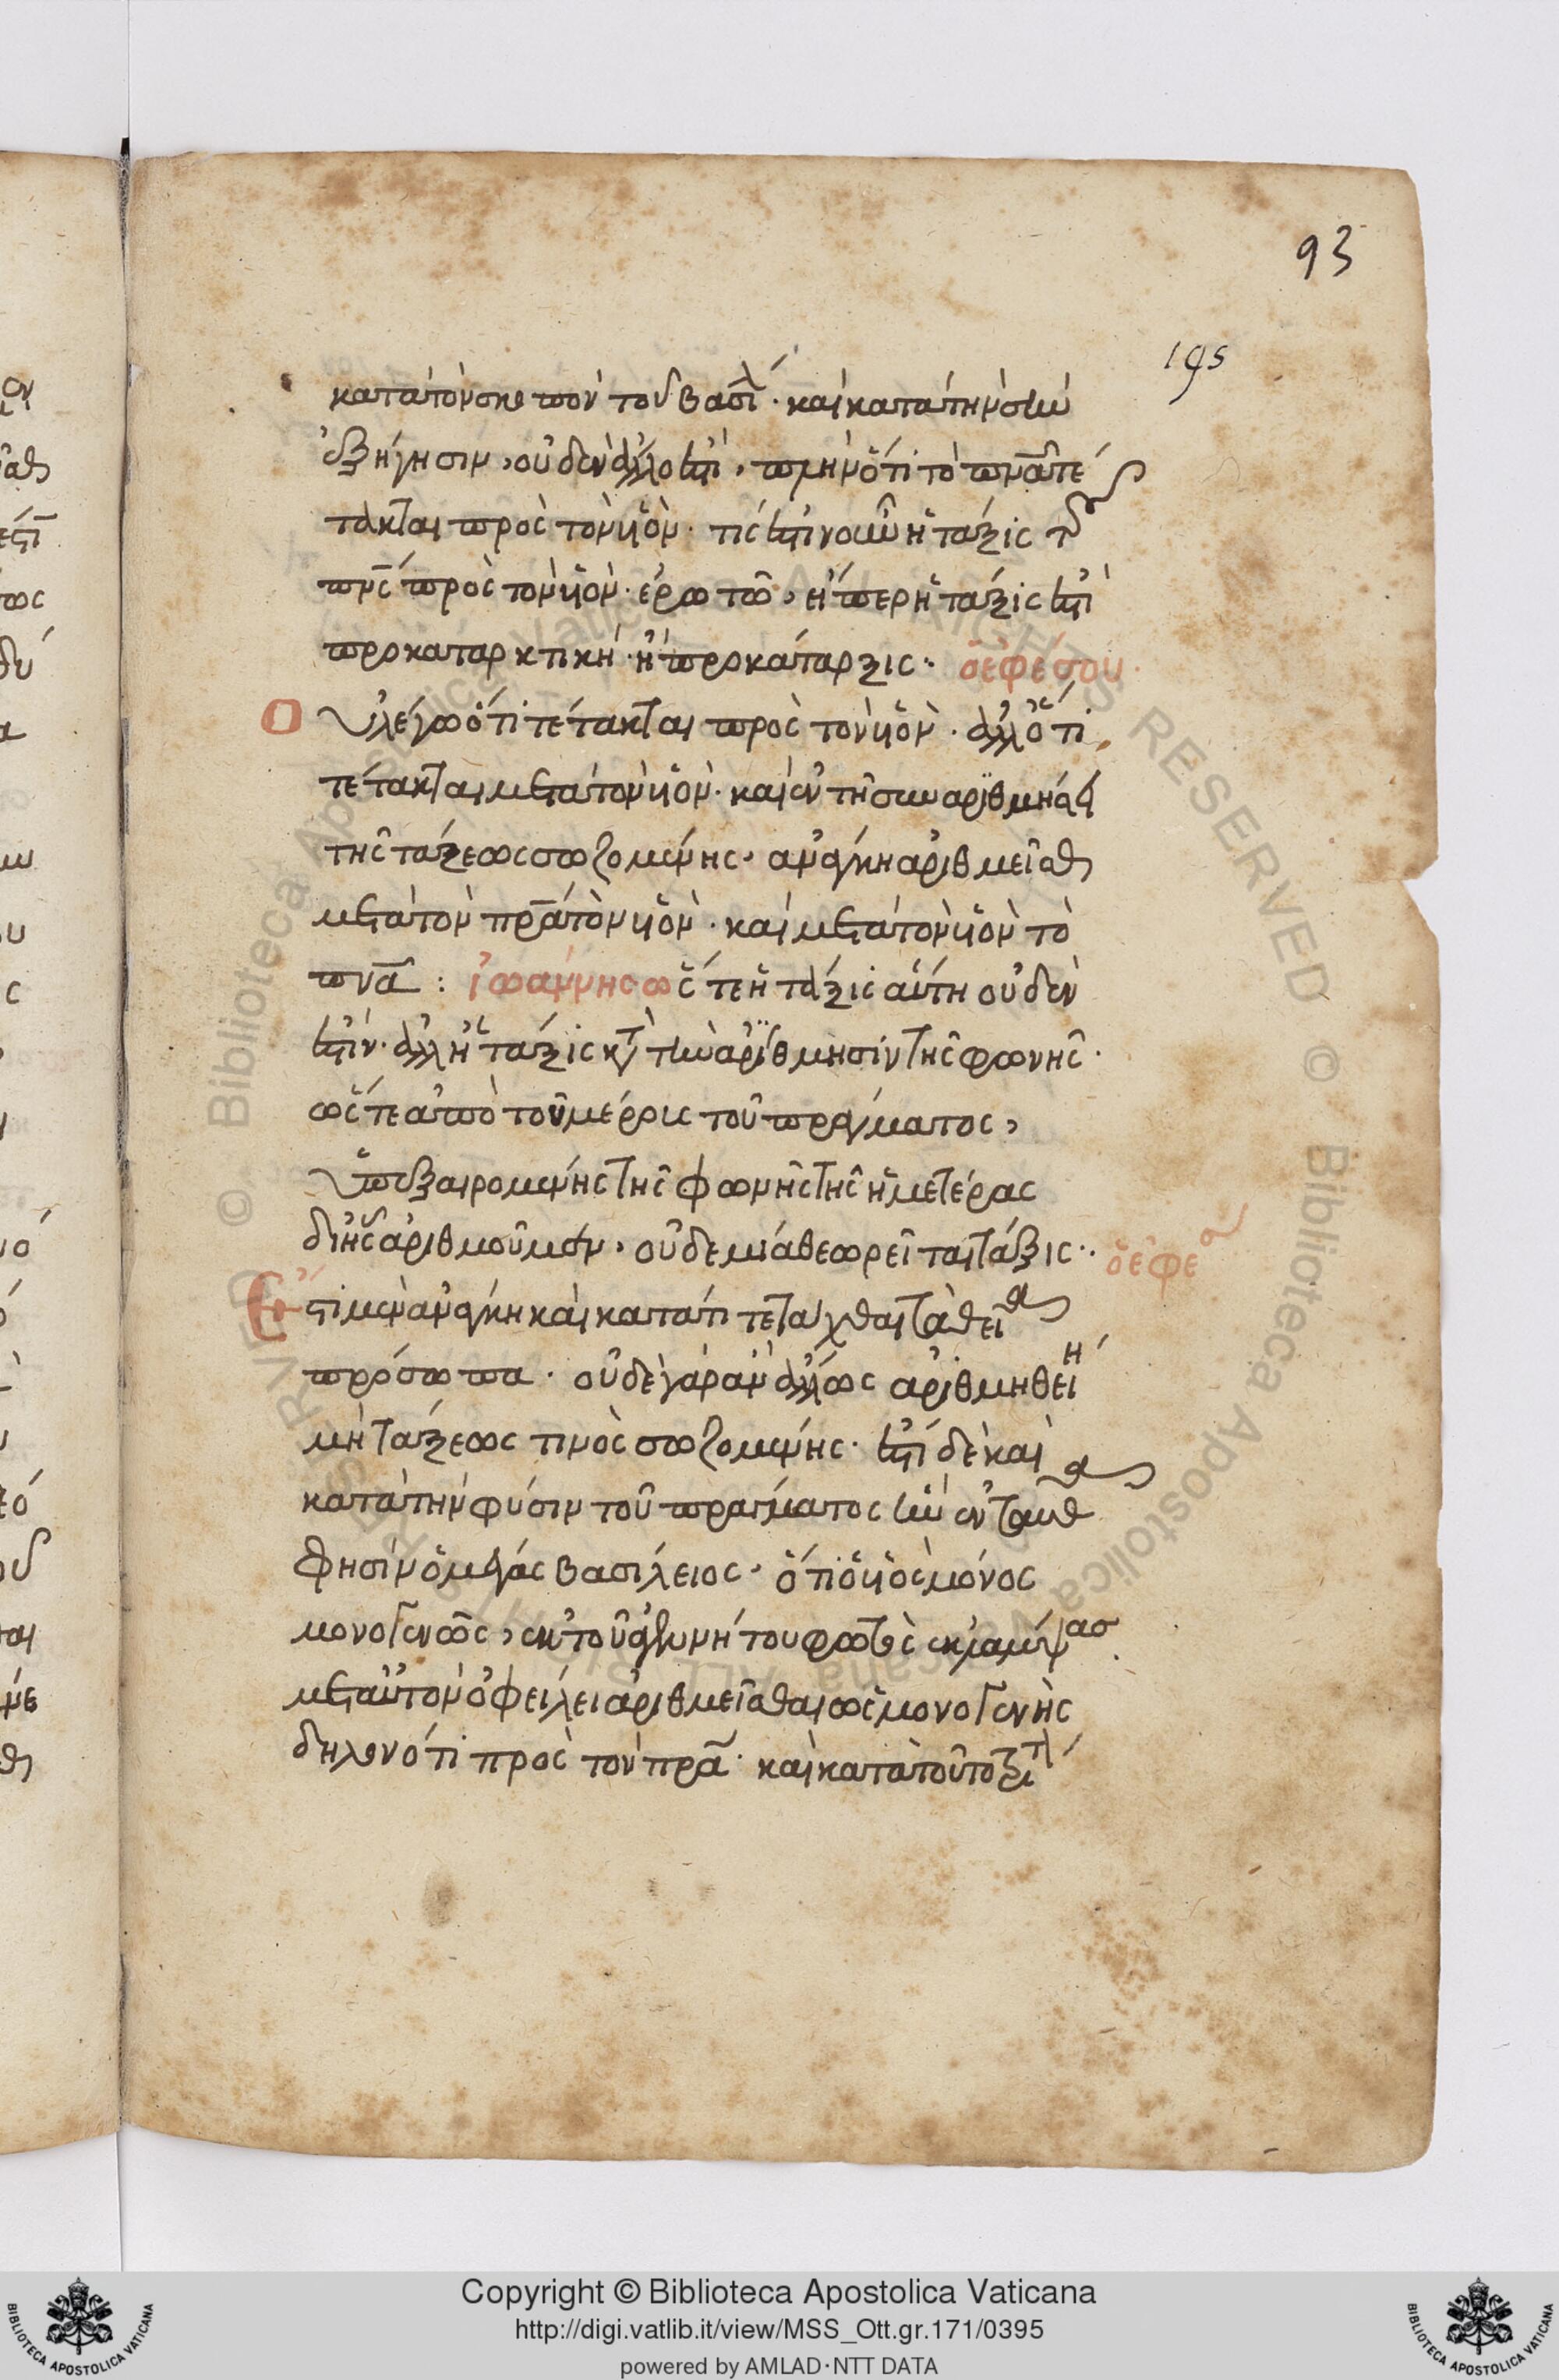 93
195
κατὰ τὸν σκοπὸν τοῦ βασιλ. καὶ κατὰ τὴν σὴν
ἐξήγησιν, οὐδὲν ἄλλο ἐστὶ, πλὴν ὅτι τὸ πνα τέ
τακται πρὸς τὸν υν. τίς ἐστιν οὖν ἡ τάξις τοῦ
πνς πρὸς τὸν υν. ἐρωτῶ, εἴπερ ἡ τάξις ἐστὶ
προκαταρκτικὴ ἢ προκάταρξις. ὁ ἐφέσου.
Οὐ λέγω ὅτι τέτακται πρὸς τὸν υν. ἀλλ' ὅτι
τέτακται μετὰ τὸν υν. καὶ ἐν τῇ συναριθμήσει
τῆς τάξεως σωζομένης. ἀνάγκη ἀριθμεῖσθαι
μετὰ τὸν πρα τὸν υν. καὶ μετὰ τὸν υν τὸ
πνα : ἰωάννης ὥστε ἡ τάξις αὕτη οὐδέν
ἐστιν. ἀλλ' ἡ τάξις κατὰ τὴν ἀρίθμησιν τῆς φωνῆς.
ὥστε ἀπὸ τοῦ μέρους τοῦ πράγματος,
ὑπεξαιρομένης τῆς φωνῆς τῆς ἡμετέρας
δι' ἧς ἀριθμοῦμεν, οὐδεμία θεωρεῖται τάξις.. ὁ ἐφέ
Ἔστι μὲν ἀνάγκη καὶ κατά τι τετάχθαι τὰ θεῖα
πρόσωπα. οὐδὲ γὰρ ἂν ἄλλως ἀριθμηθείη
μὴ τάξεως τινὸς σωζομένης. ἐστὶ δὲ καὶ
κατὰ τὴν φύσιν τοῦ πράγματος ἣν ἐνταῦθα
φησὶν ὁ μέγας βασίλειος. ὅτι ὁ υς μόνος
μονογενῶς, ἐκ τοῦ ἀγεννήτου φωτὸς ἐκλάμψασ.
μετ' αὐτὸν ὀφείλει ἀριθμεῖσθαι ὡς μονογενὴς
δηλονότι πρὸς τὸν πρα. καὶ κατὰ τοῦτο
Copyright © Biblioteca Apostolica Vaticana
http://digi.vatlib.it/view/MSS_Ott.gr.171/0395
powered by AMLAD·NTT DATA